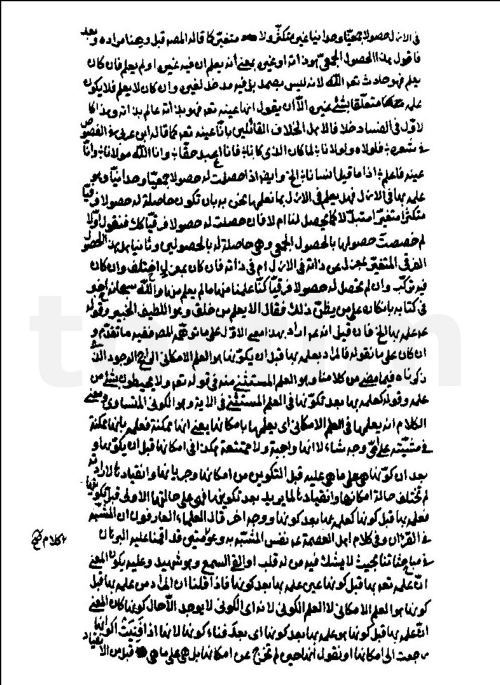 فى الازل حصولا جمعيا وحدانيا غير متكثر ولا متغير كما قاله المصـ قبل وهنا مراده وبعد
فاقول هذا الحصول الجمعى هو ذاته او غيره بمعنى انه يعلم ان فيه غيره او لم يعلم فان كان
يعلم فهو حادث تعم الله لانه ليس بصمد بل فيه مدخل لغيره وان كان لا يعلم فلا يكون
علمه متعلقا بشئ غيره الا ان يقول انها عينه تعم فهو بذاته عالم بذاته وهذا كا
لاول فى الفساد خلافا لاهل الخلاف القائلين باناعينه تعم كما قال ابن عربى فى الفصوص
فى شعره فلولاه ولولانا لما كان الذى كانا فانا اعبد حقا وانا الله مولانا وانا
عينه فاعلم اذا ما قيل انسانا الخ وايضا اذا حصلت له حصولا جمعيا وحدانيا وهو
علمه بها فى الازل فهل يعلم فى الازل بما نعلم نحن به بان تكون حاصلة له حصولا فرقيا
متكثرا متغيرا مستبدلا كما يحصل لنا ام لا فان حصلت له حصولا فرقيا كك فنقول اولا
لم خصصت حصولها بالحصول الجمعى وهى حاصلة له بالحصولين وثانيا هل هذا الحصول
الفرقى المتغير بمعزل عن ذاته فى الازل ام فى ذاته فان كان بمعزل اختلف وان كان
فيه تركب وان لم تحصل له حصولا فرقيا كنا علمنا منها ما لم يعلم منها والله سبحانه اخبر
فى كتابه بانكار على من يظن ذلك فقال الا يعلم من خلق وهو اللطيف الخبير وقوله
عم علمه بها الخ فان قيل انه عم اراد بهذا معنى الاول على ما توهمه المصـ ففيه ما تقدم و
ان كان على ما نقوله فالمراد بعلمه بها قبل ان يكونها هو العلم الامكانى الراجح الوجود الذى
ذكرناه فيما مضى من كلامنا وهو العلم المستثنى منه فى قوله تعم ولا يحيطون بشئ من
علمه وقوله كعلمه بها بعد تكوينها فى العلم المستثنى فى الاية وهو الكونى المتساوى ومعنى
الكلام انه يعلمها فى العلم الامكانى اى يعلمها بامكانها يعنى انها ممكنة فعلمه بانها ممكنة
فى مشيته على اى وجه شاء لا انها واجبة ولا ممتنعة هكذا فى امكانها قبل ان يكونها و
بعد ان كونها هى على ما هى عليه قبل التكوين من امكانها وجريانها وانقيادها لارادته
لم تختلف حالة امكانها وانقيادها لما يريد بعد تكوينها فهى على حالتها الاولى قبل تكوينها
فعلمه بها قبل كونها كعلمه بها بعد كونها ووجه اخر قال العلماء العارفون ان المشبه
فى القران وفى كلام اهل العصمة عم نفس المشبه به وهو متين قد اقمنا عليه البرهان
فى مباحثاتنا بحيث لا يشك فيه من له قلب او القى السمع وهو شهيد وعليه يكون المعنى
ان علمه تعم بها قبل كونها عين علمه بها بعد كونها فاذا قلنا ان المراد من علمه بها قبل
كونها هو العلم الامكانى لا العلم الكونى لانه اى الكونى لا يوجد الا حال كونها كان المعنى
ان علمه بها قبل كونها هو علمه بها بعد كونها اى بعد فناء كونها لانها اذا فنيت اكوانها
رجعت الى امكانها او نقول انها حين لم تخرج عن امكانها بل هى على ما هى قبل من الانقياد